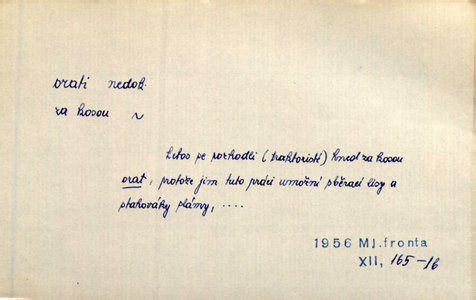 orati nedok.
za kosou ~
Letos se rozhodli (traktoristé) hned za kosou
orat, protože jim tuto práci umožní sběrací lisy a
stahováky slámy, ....
1956 Ml.fronta
XII, 165-16